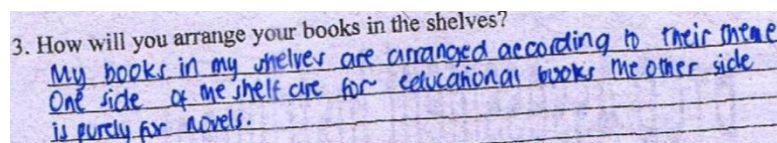 3. How will you arrange your books in the shelves?
My books in my shelves are arranged according to their theme
One side of the shelf are for educational books the other side
is purely for novels.